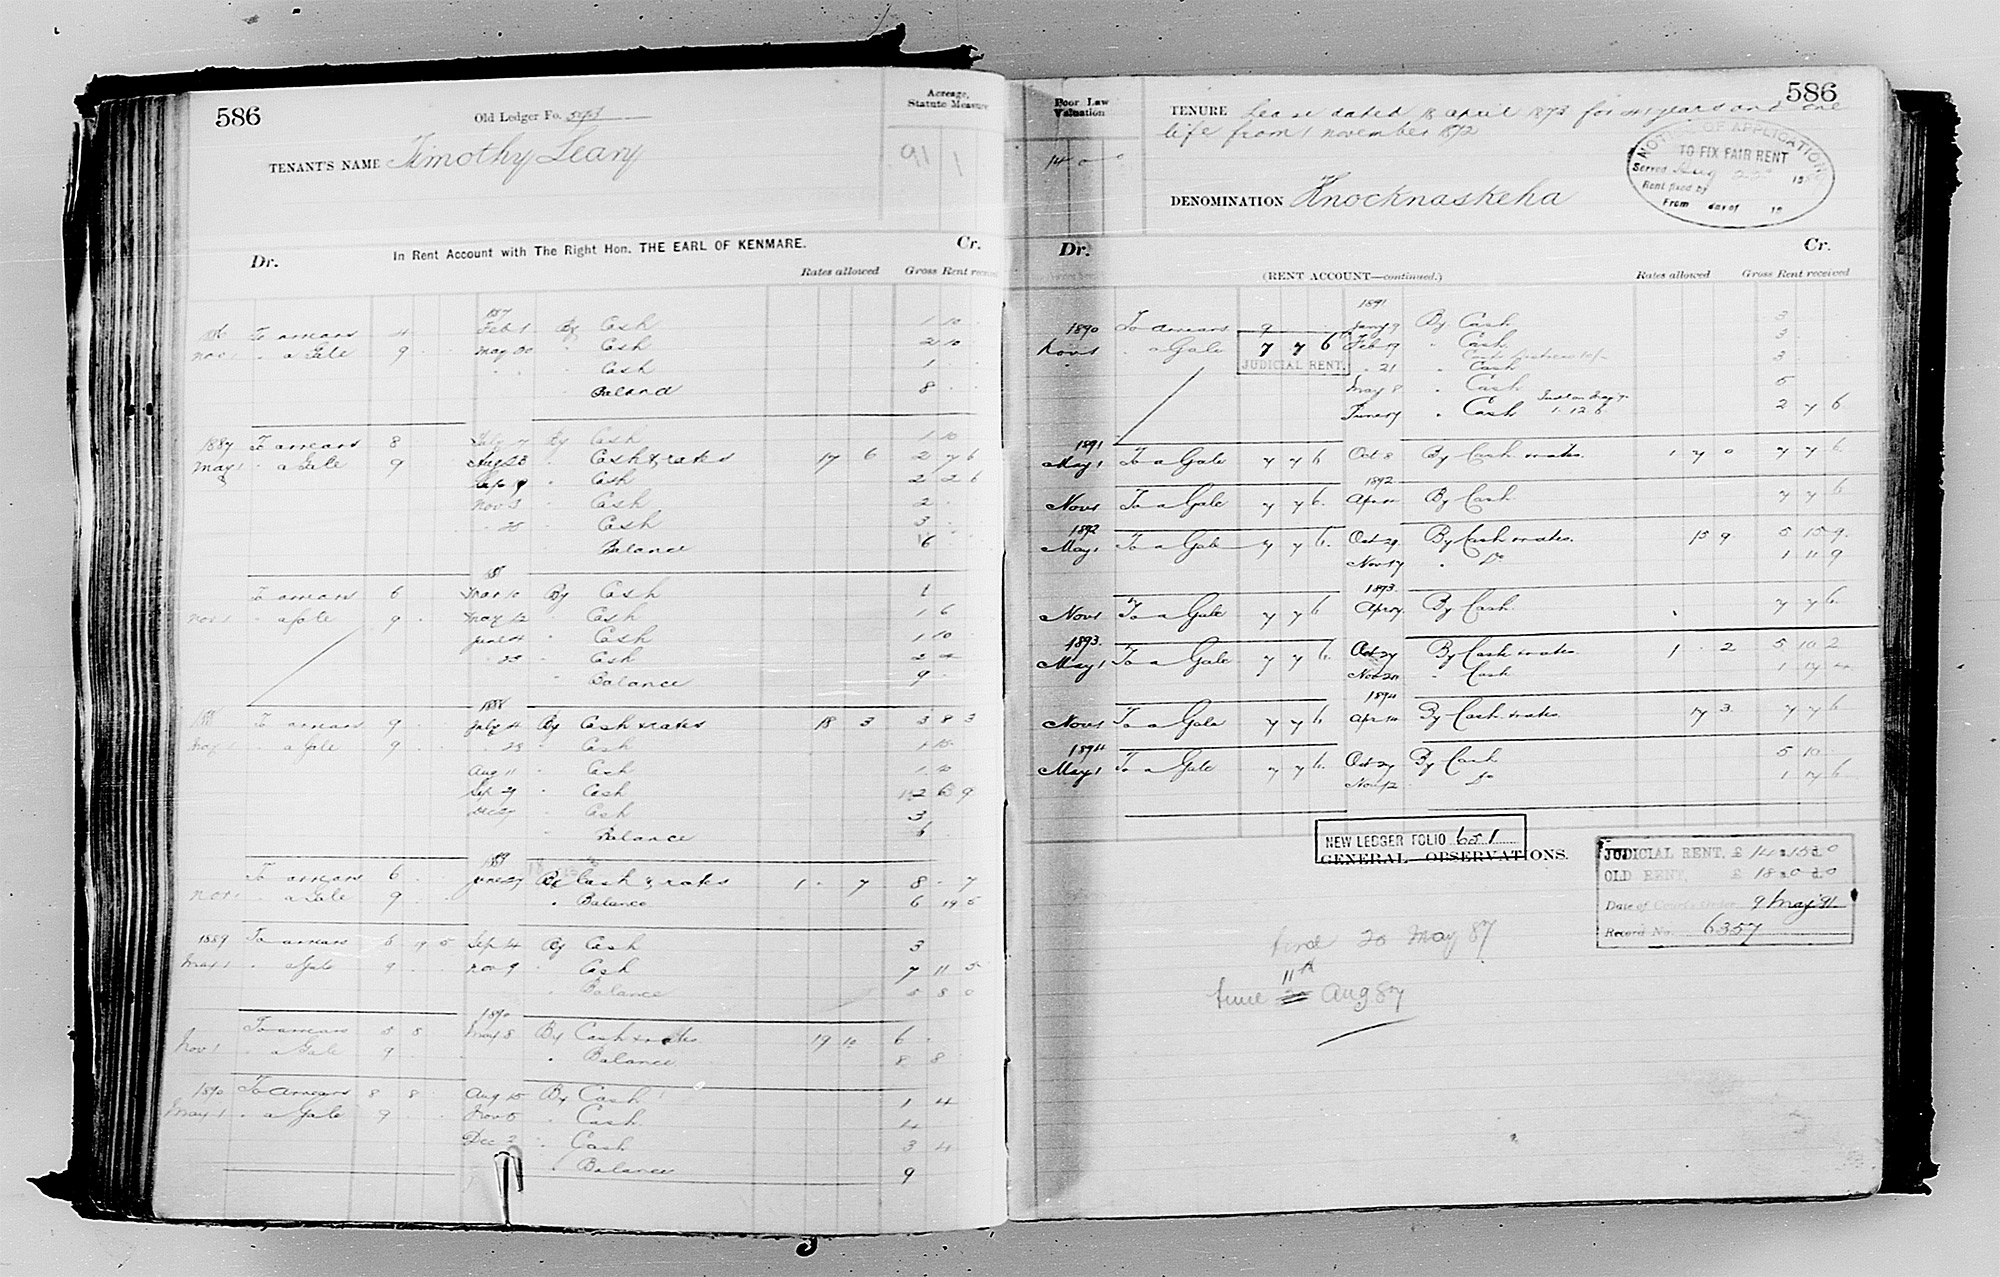 586
Old Ledger Fo.
Acreage, Statute Measure
TENANT'S NAME Timothy Leary
91 1
In Rent Account with The Right Hon. THE EARL OF KENMARE.
Dr. Cr.
Rates allowed Gross Rent received
To arrears 4 Feb 1 By Cash 1 10
Nov 1 " a Gale 9 May 30 " Cash 2 10
" Cash 1
" Balance 8
1887 To arrears 8 July By Cash 1 10
May 1 " a Gale 9 Aug 23 " Cash & rates 17 6 2 7 6
" Cash 2 2 6
Nov 3 " Cash 2
" Cash 3
Balance 6
To arrears 6 Mar 10 By Cash 1
Nov 1 " a Gale 9 May 12 " Cash 1 6
June 4 " Cash 1 10
" 23 " Cash 2 4
" Balance 9
1888
To arrears 9 July 4 By Cash & rates 18 3 3 8 3
May 1 " a Gale 9 " 28 " Cash 1 15
Aug 11 " Cash 1 10
Sep 29 " Cash
Dec 27 " Cash 3
" Balance 6
1889
To arrears 6 June 27 By Cash & rates 1 - 7 8 - 7
Nov 1 " a Gale 9 " Balance 6 19 5
1889 To arrears 6 19 5 Sep 14 By Cash 3
May 1 " a Gale 9 Nov 9 " Cash 7 11 5
" Balance 8 0
1890
To arrears 8 May 8 By Cash & rates 19 10 6
Nov 1 " a Gale 9 " Balance 8 8
1890 To arrears 8 8 Aug 15 By Cash 1 4
May 1 " a Gale 9 Nov 5 " Cash 4
Dec 2 " Cash 3 4
" Balance 9
586
Poor Law Valuation
14 0 0
TENURE Lease dated 18 April 1873 for 41 years and one
life from 1 November 1872
NOTICE OF APPLICATION
TO FIX FAIR RENT
Served Aug
Rent fixed by
From day of 18
DENOMINATION Knocknaskeha
Dr. Cr.
(RENT ACCOUNT—continued.)
Rates allowed Gross Rent received
1891
1890 To arrears 9 Jany 9 By Cash 3
Nov 1 " a Gale 7 7 6 Feb 19 " Cash 3
JUDICIAL RENT.
" 21 " Cash 3
May 8 " Cash 5
June 17 " Cash 1.12.6 2 7 6
1891
May 1 To a Gale 7 7 6 Oct 8 By Cash & rates. 1 7 0 7 7 6
1892
Nov 1 To a Gale 7 7 6 Apr 11 By Cash 7 7 6
1892
May 1 To a Gale 7 7 6 Oct 29 By Cash & rates. 15 9 5 15 9
Nov 17 " Do 1 11 9
1893
Nov 1 To a Gale 7 7 6 Apr 7 By Cash 7 7 6
1893.
May 1 To a Gale 7 7 6 Oct 27 By Cash & rates. 1 - 2 5 10 2
Nov 20 " Cash 1 17 4
1894
Nov 1 To a Gale 7 7 6 Apr 14 By Cash & rates. 17 3 7 7 6
1894
May 1 To a Gale 7 7 6 Oct 27 By Cash 5 10
Nov 12 Do 1 17 6
NEW LEDGER FOLIO 651
GENERAL OBSERVATIONS.
JUDICIAL RENT, £ 14 s 15 d 0
OLD RENT, £ 18 s 0 d 0
Date of Court's Order 9 May 91
Record No. 6357
time 20 May 87
11th
time Aug 87